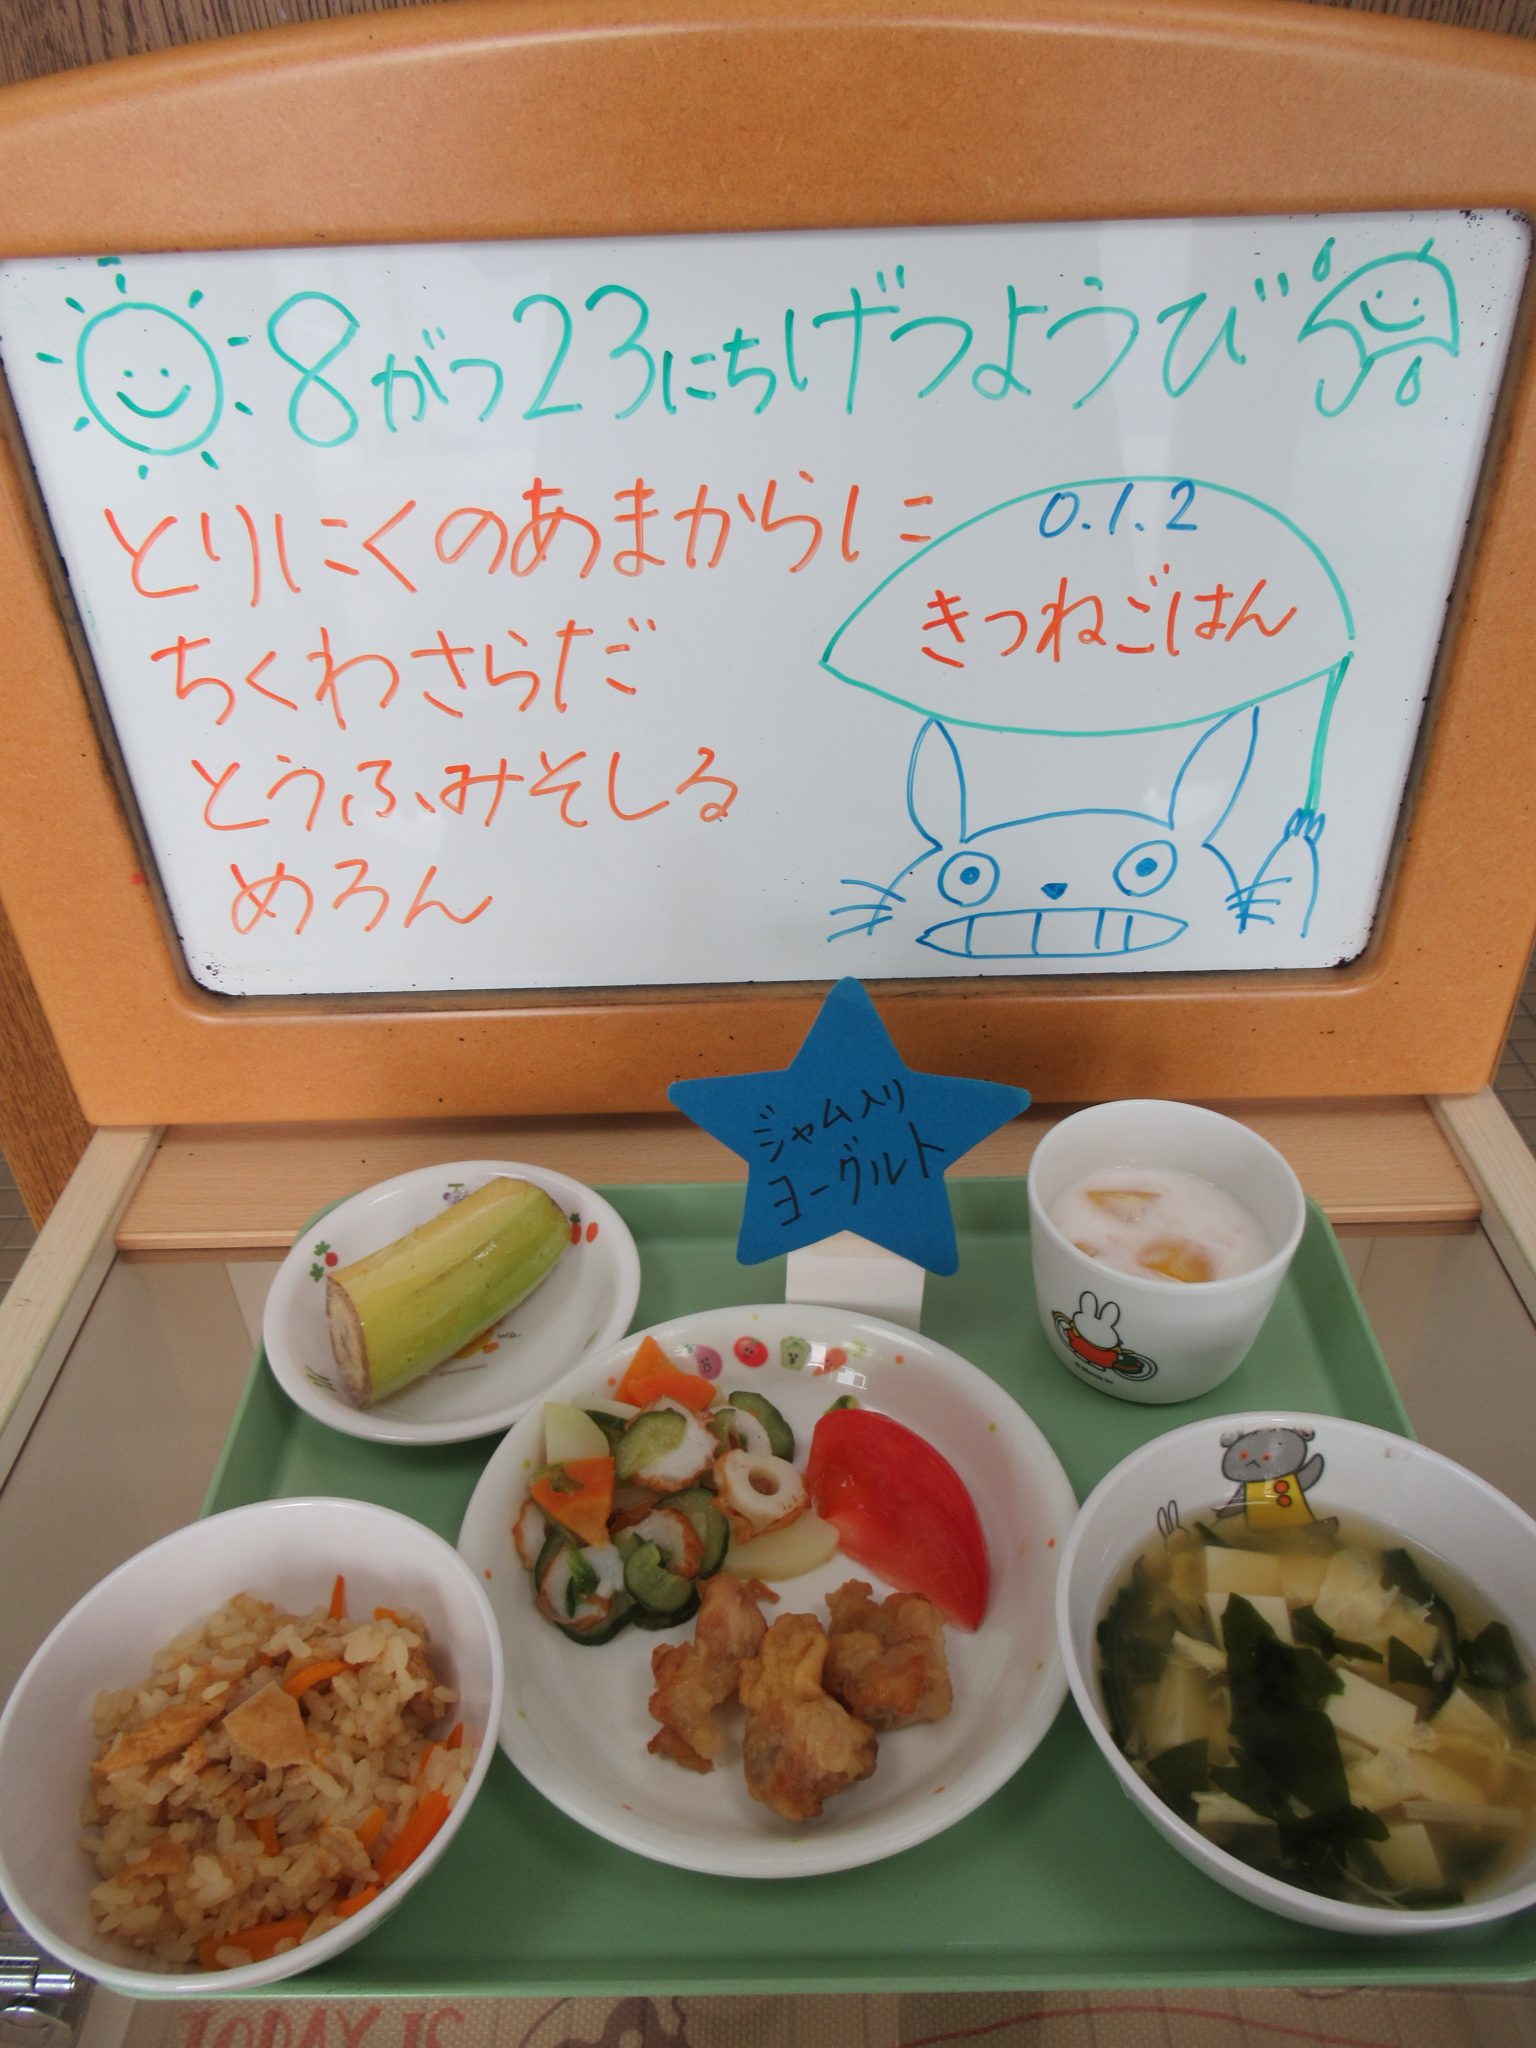 8がつ23にちげつようび
とりにくのあまからに
ちくわさらだ
とうふみそしる
めろん
0.1.2
きつねごはん
ジャム入り
ヨーグルト
TODAY IS